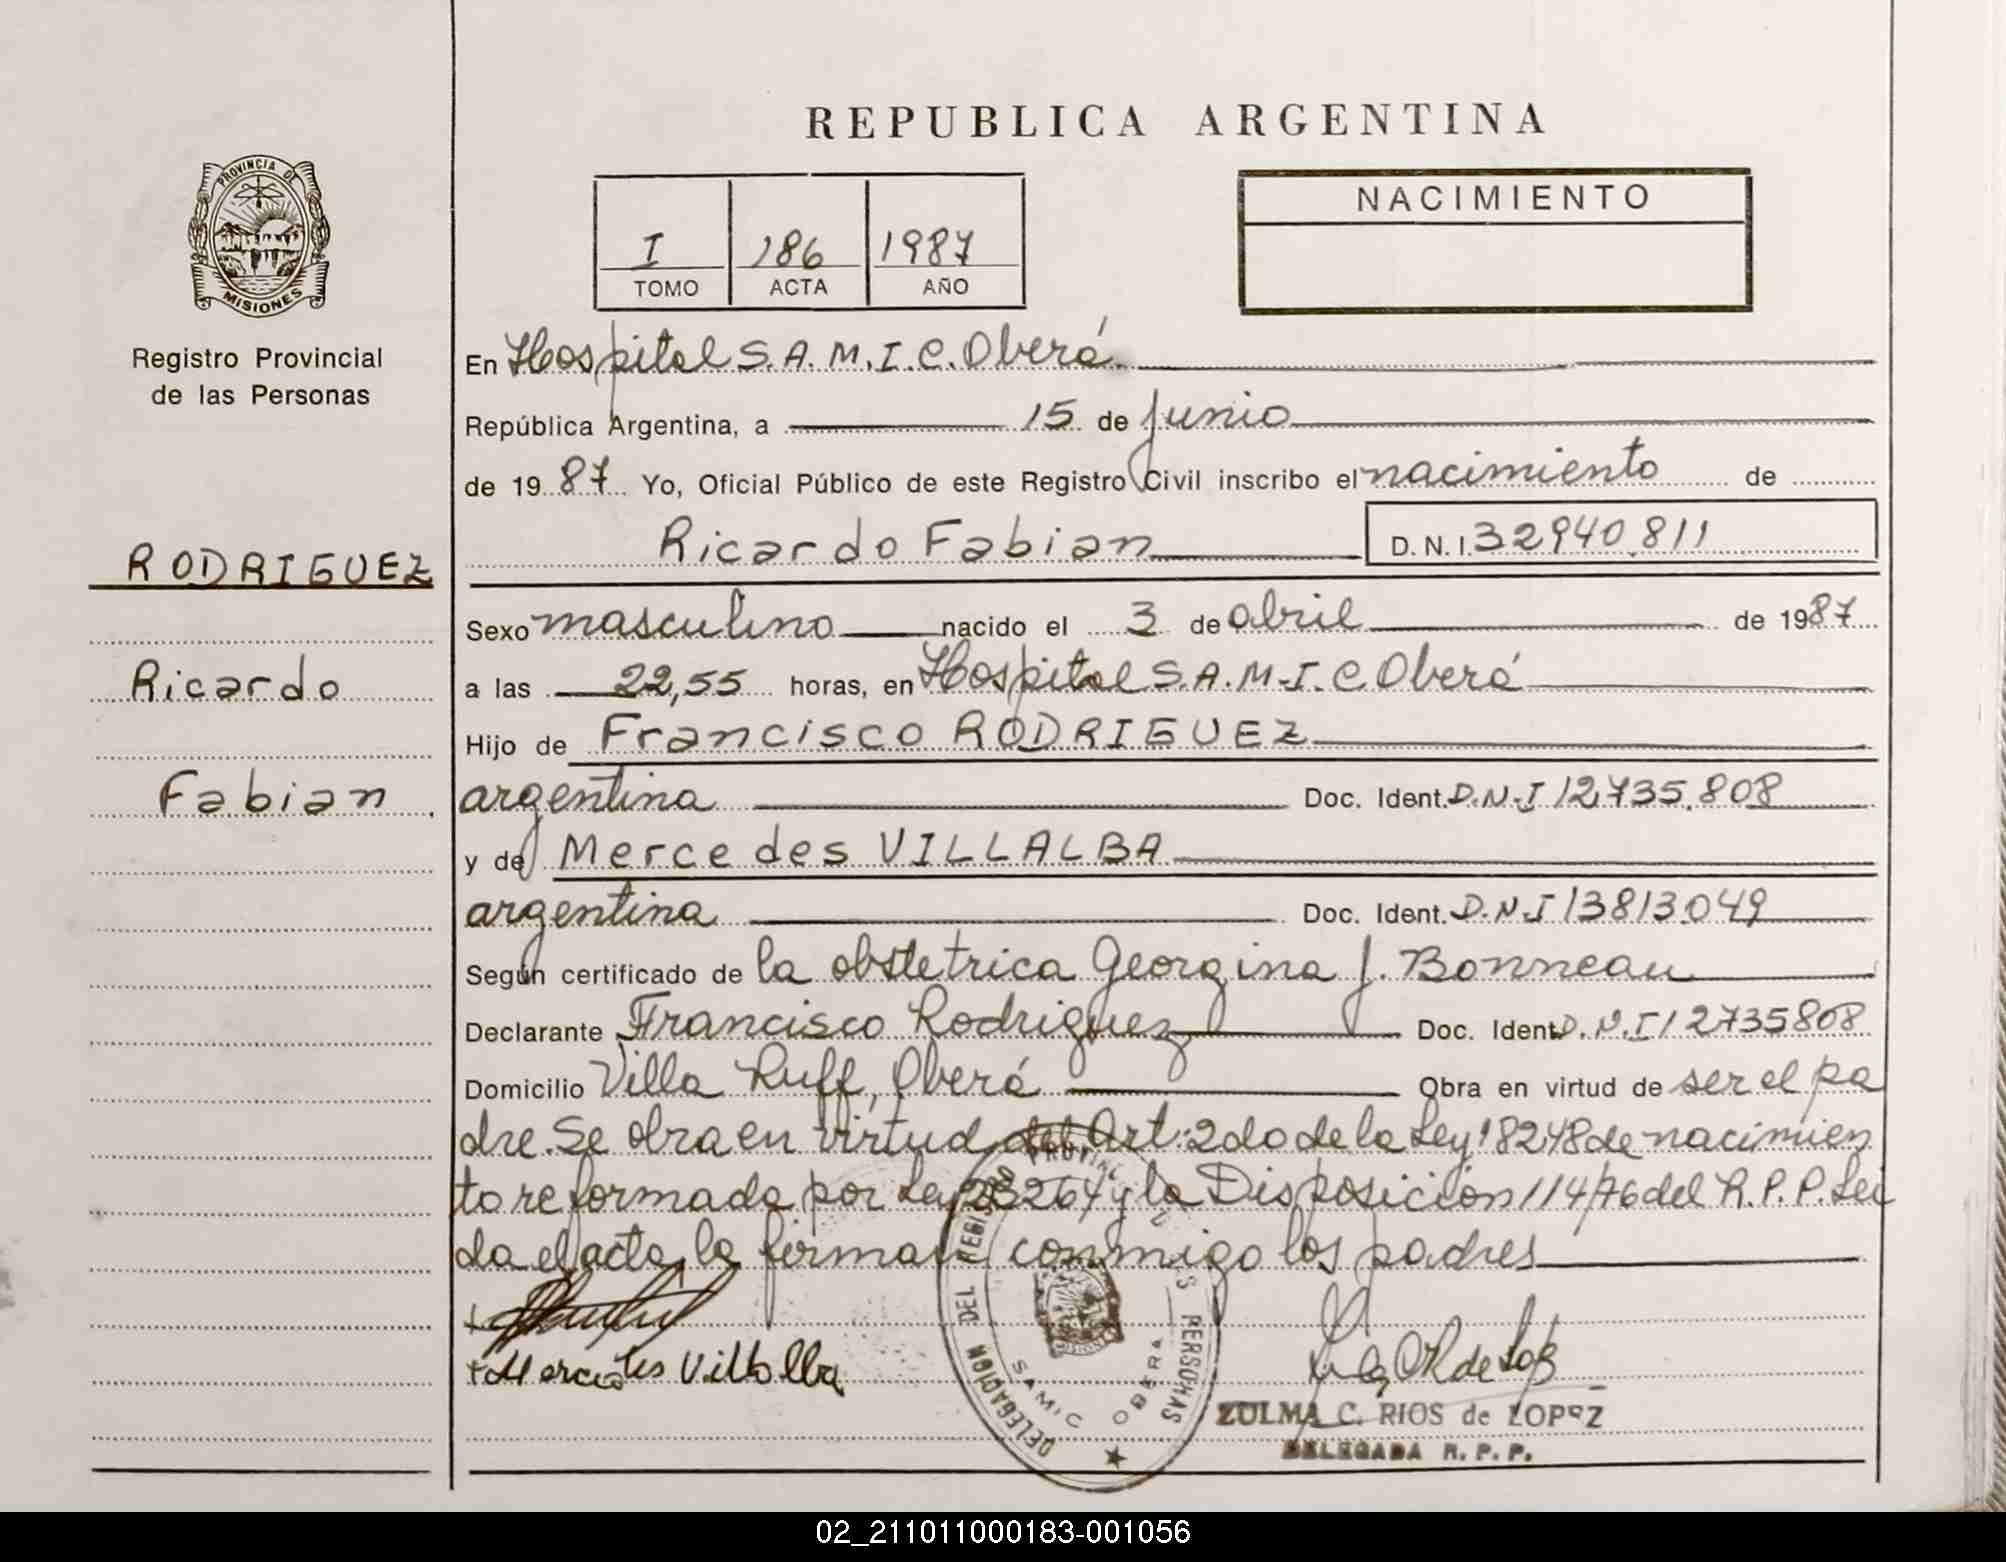 REPUBLICA ARGENTINA
PROVINCIA DE
MISIONES
Registro Provincial
de las Personas
RODRIGUEZ
Ricardo
Fabian
I 186 1987
TOMO ACTA AÑO
NACIMIENTO
En Hospital S.A.M.I.C. Oberá
República Argentina, a 15 de junio
de 1987 Yo, Oficial Público de este Registro Civil inscribo el nacimiento de
Ricardo Fabian D.N.I. 32940.811
Sexo masculino nacido el 3 de abril de 1987
a las 22,55 horas, en Hospital S.A.M.I.C Oberá
Hijo de Francisco RODRIGUEZ
argentina Doc. Ident. D.N.I 12.735.808
y de Mercedes VILLALBA
argentina Doc. Ident. D.N.I 13813.049
Según certificado de la obstetrica Georgina J. Bonneau
Declarante Francisco Rodriguez Doc. Ident. D.N.I 12735808
Domicilio Villa Ruff, Oberá Obra en virtud de ser el pa
dre. Se obra en virtud del Art: 2do de la Ley 18248 de nacimien
to reformada por Ley 23264 y la Disposicion 114/76 del R.P.P. Lei
da el acta, la firman conmigo los padres
+ Mercedes Villalba
DELEGACION DEL REGISTRO PROVINCIAL PERSONAS
SAMIC OBERA
ZULMA C. RIOS de LOPEZ
DELEGADA R.P.P.
02_211011000183-001056